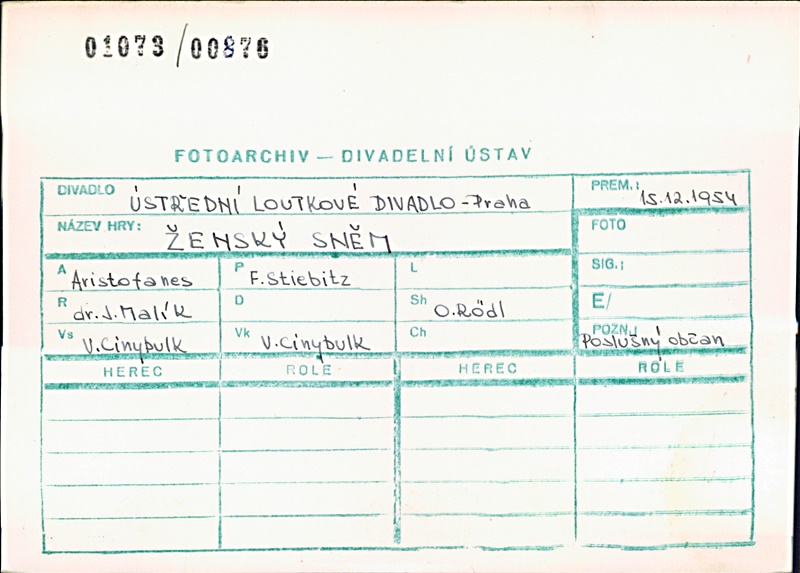 01073/00876
FOTOARCHIV — DIVADELNÍ ÚSTAV
DIVADLO ÚSTŘEDNÍ LOUTKOVÉ DIVADLO - Praha
PREM.: 15.12.1954
NÁZEV HRY: ŽENSKÝ SNĚM
FOTO
A Aristofanes
P F. Stiebitz
L
SIG.:
R dr. J. Malík
D
Sh O. Rödl
E/
Vs V. Cinybulk
Vk V. Cinybulk
Ch
POZN.: Poslušný občan
HEREC ROLE HEREC ROLE